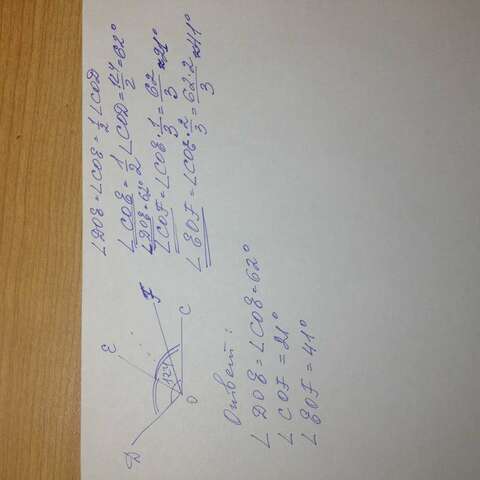 ∠DOE = ∠COE = 1/2 ∠COD
∠COE = 1/2 ∠COD = 124/2 = 62°
∠DOE = 62°
∠COF = ∠COE · 1/3 = 62/3 ≈ 21°
∠EOF = ∠COE · 2/3 = 62·2/3 ≈ 41°
D
E
F
C
O
124
Ответ:
∠DOE = ∠COE = 62°
∠COF = 21°
∠EOF = 41°